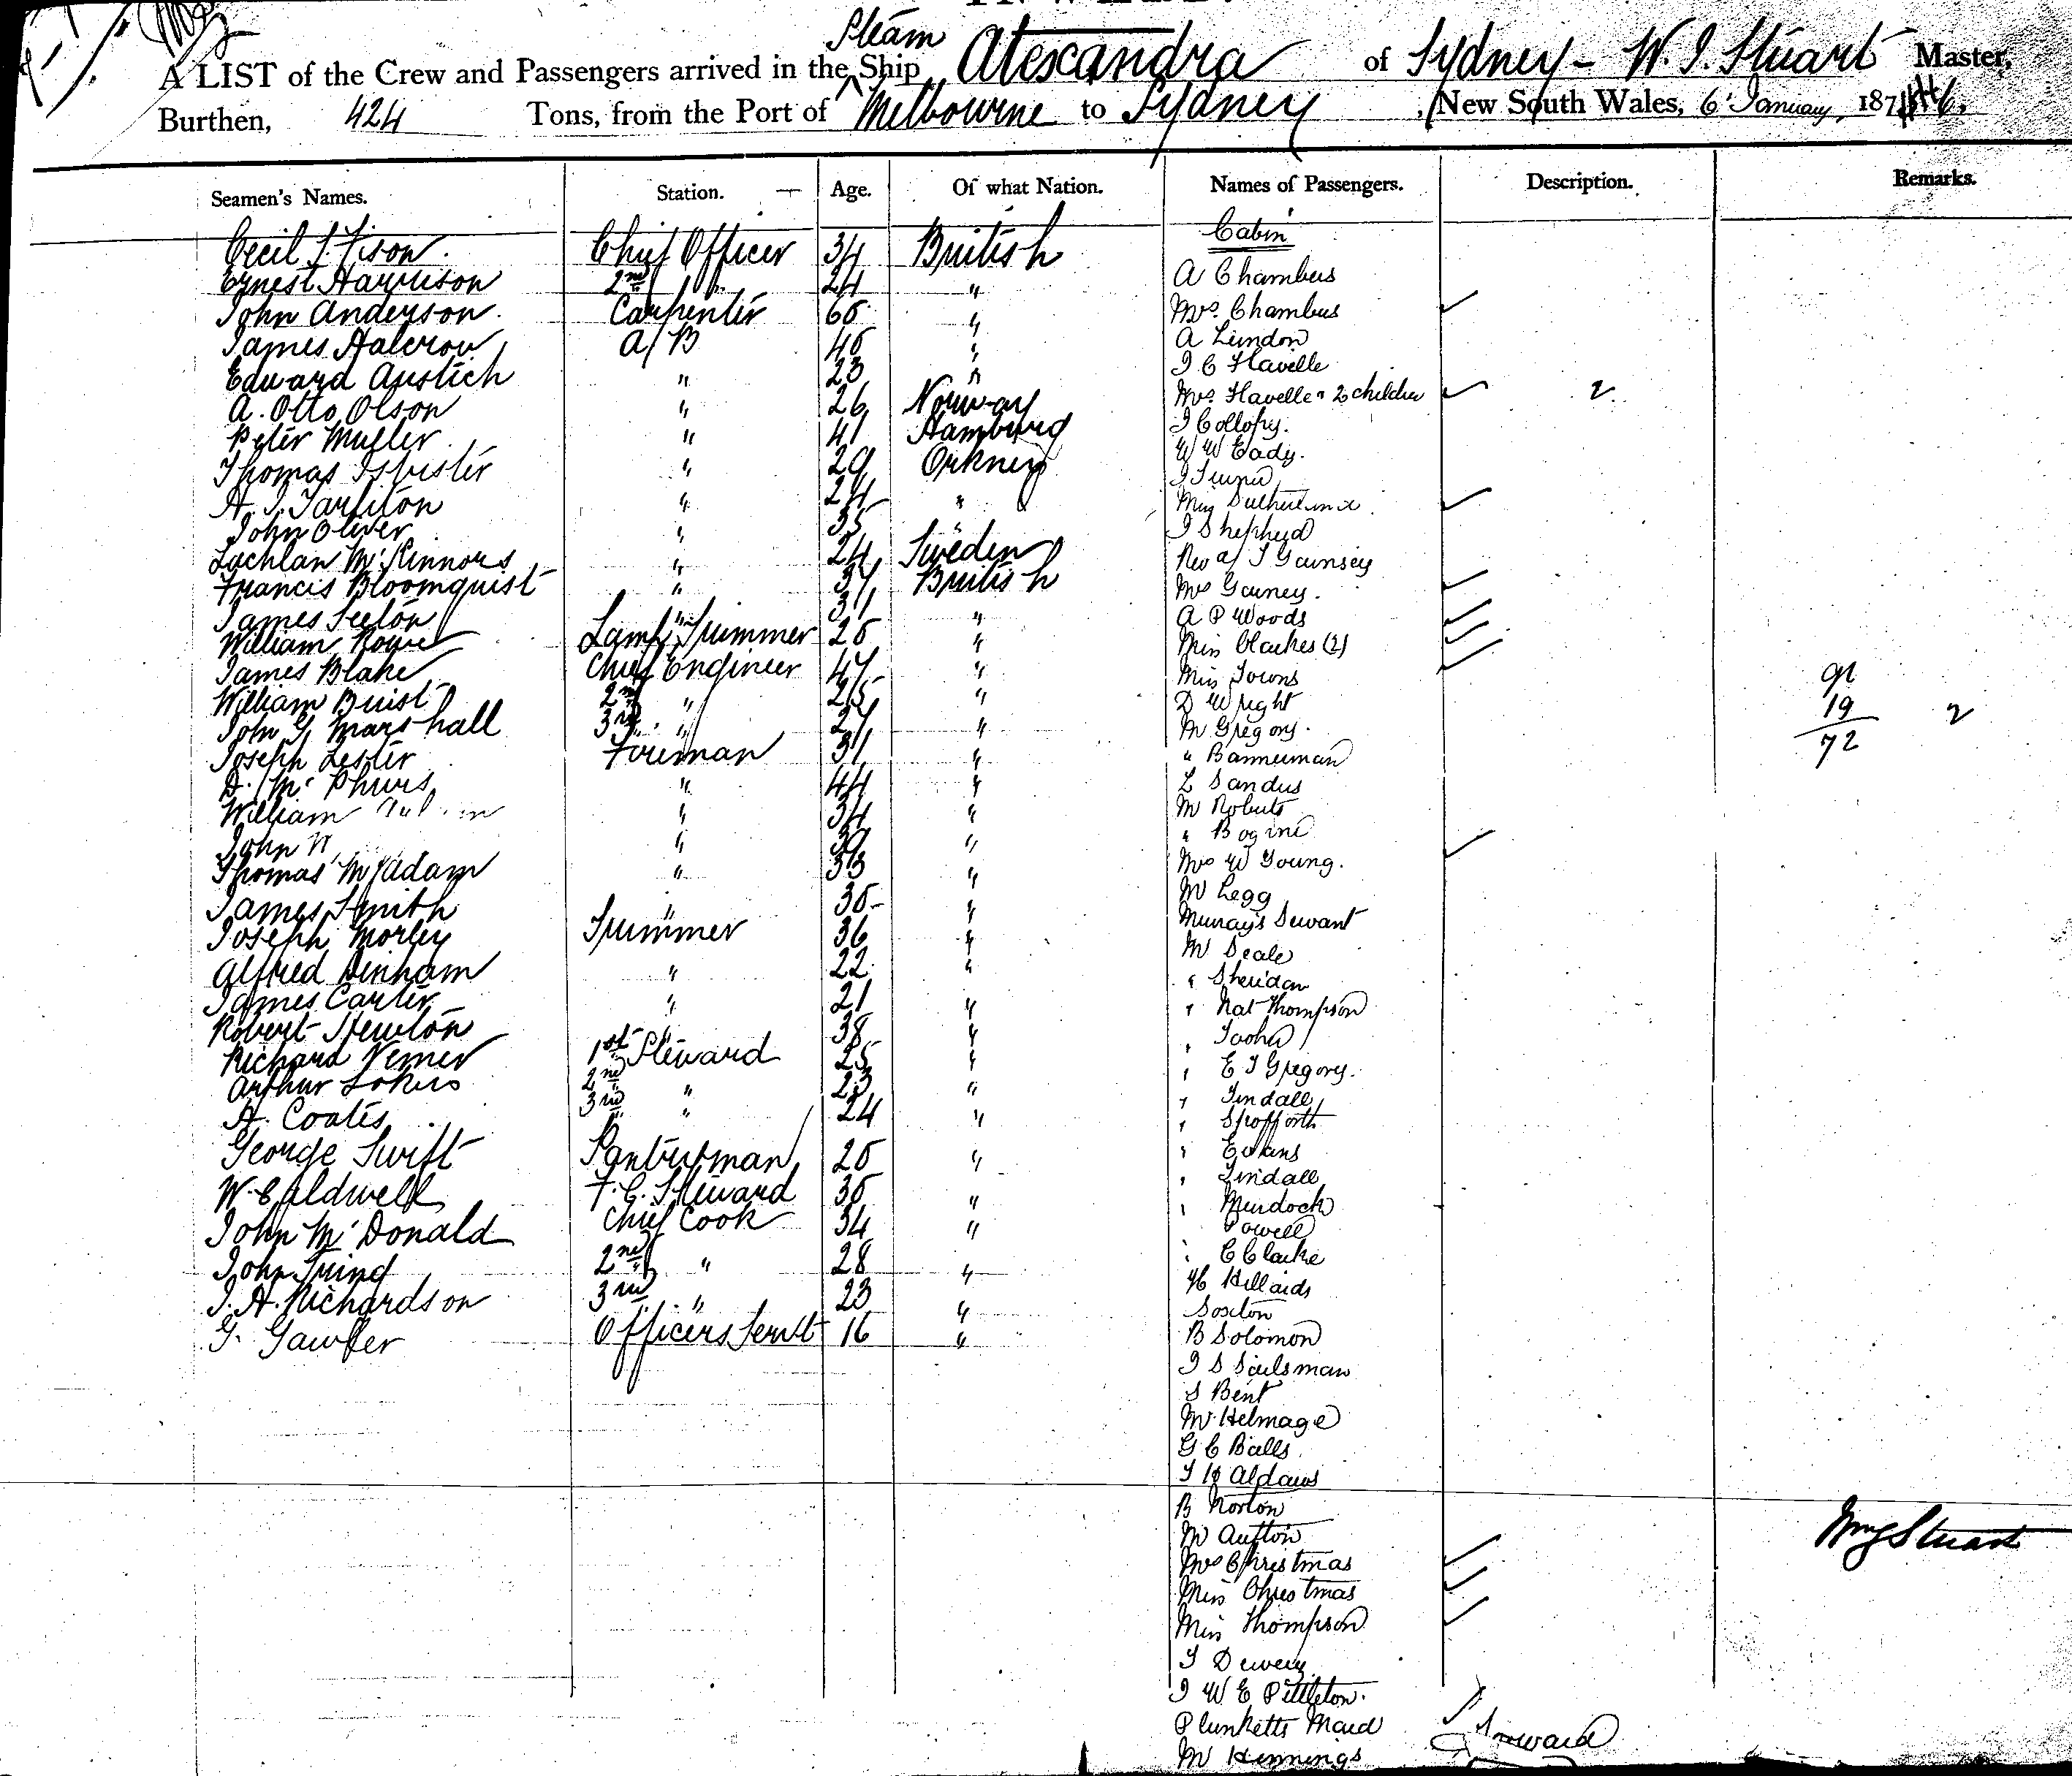 Steam
A LIST of the Crew and Passengers arrived in the Ship Alexandra of Sydney - W. J. Stuart Master,
Burthen, 424 Tons, from the Port of Melbourne to Sydney, New South Wales, 6 January, 187
Seamen's Names. Station. Age. Of what Nation. Names of Passengers. Description. Remarks.
Cabin
Cecil Fison Chief Officer 34 British
Ernest Harrison 2nd " 24 "
John Anderson Carpenter "
James Halcrow A/B "
Edward Austich " 23 "
A. Otto Olson " 26 Norway
Peter Muller " 41 Hamburg
Thomas Isbister " 29 Orkney
H. J. Tarliton " 24 "
John Oliver " 35 "
Lachlan McKinnors " 24 Sweden
Francis Bloomquist " British
James Seelon " "
William Rowe Lamp Trimmer "
James Blake Chief Engineer 47 "
William Buist 2nd " 25 "
John G. Marshall 3rd " "
Joseph Lester Foreman "
D. Mc " 44 "
William " 34 "
John " 39 "
Thomas McAdam " 33 "
James Smith " "
Joseph Morley Trimmer 36 "
Alfred Dinham " 22 "
James Carter " 21 "
Robert Newton 38 "
Richard Vener 1st Steward 25 "
Arthur 2nd " 23 "
H. Coates 3rd " 24 "
George Swift Pantryman "
W. Caldwell F. C. Steward "
John McDonald Chief Cook 34 "
John Trind 2nd " 28 "
J. H. Richardson 3rd " 23 "
G. Gawler Officers Servt 16 "
A Chambers
Mrs Chambers
A Lindon
J C Flavelle
Mrs Flavelle & 2 children 2
J Collopy.
W W Eady.
J
Miss
J Shepherd
Rev A J Garnsey
Mrs Garney.
A P Woods
Miss Clarkes (2)
Miss Towns
D Wright
M Gregory.
" Bannerman
L Sandes
M Roberts
" Bogini
Mrs W Young.
M Legg
Murray's Servant
M Deale
" Sheridan
" Nat Thompson
" Tooher
" E J Gregory.
" Tindall
" Spofforth
" Evans
" Tindall
" Murdoch
" Powell
" C Clarke
H Hillaids
Soxton
B Solomon
J S Saulsman
S Bent
M Helmage
G C Balls
J H Aldaws
B Norton
M Aufton
Mrs Christmas
Miss Christmas
Miss Thompson
J Dewery
J W E Pittleton.
Plunketts Maid
M Hennings
Forward
91
19 2
72
Wm J Stuart